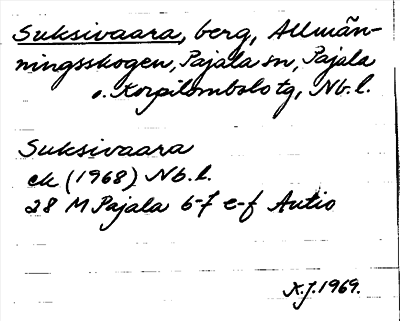 Suksivaara, berg, Allmän-
ningsskogen, Pajala sn, Pajala
o. Korpilombolo tg, Nb. l.
Suksivaara
ek (1968) Nb. l.
28 M Pajala 6-7 e-f Autio
K.J. 1969.